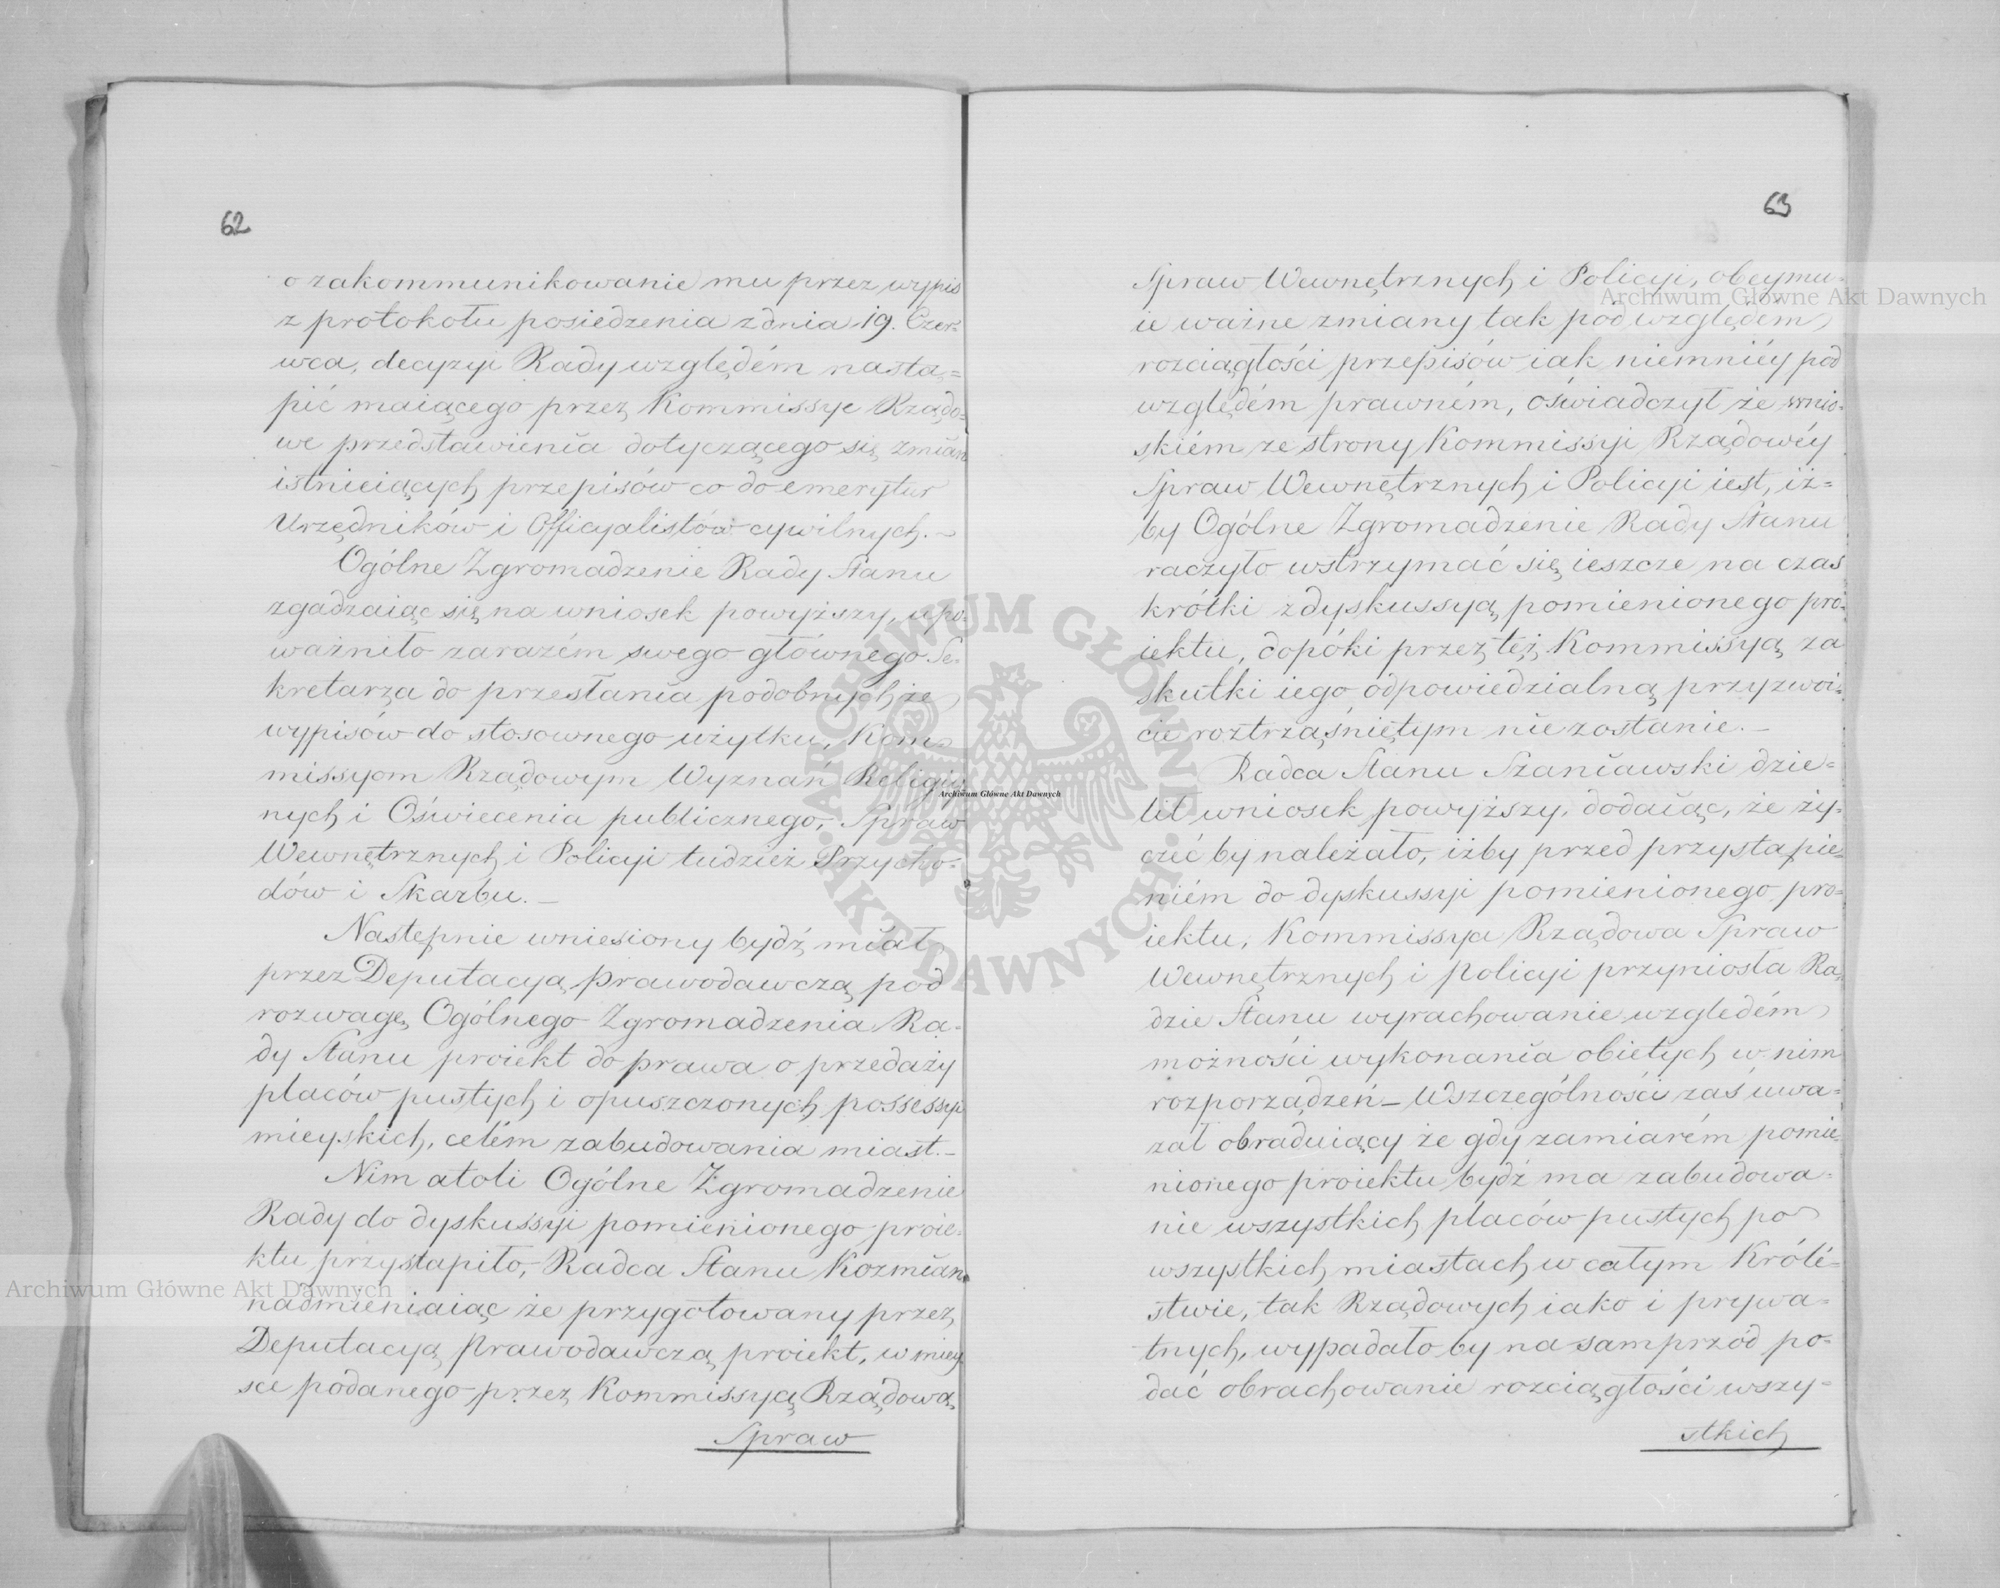 62
o zakommunikowanie mu przez wypis
z protokołu posiedzenia z dnia 19. Czer=
wca, decyzyi Rady względém nastą=
pić maiącego przez Kommissye Rządo=
we przedstawienia dotyczącego się zmian
istnieiących przepisów co do emerytur
Urzędników i Officyalistów cywilnych.—
Ogólne Zgromadzenie Rady Stanu
zgadzaiąc się na wniosek powyższy, upo=
ważniło zarazém swego głównego Se=
kretarza do przesłania podobnychże
wypisów do stosownego użytku, Kom=
missyom Rządowym Wyznań Religiy=
nych i Oświecenia publicznego, Spraw
Wewnętrznych i Policyi tudzież Przycho=
dów i Skarbu.—
Następnie wniesiony bydź miał
przez Deputacyą Prawodawczą pod
rozwagę Ogólnego Zgromadzenia Ra=
dy Stanu proiekt do prawa o przedaży
placów pustych i opuszczonych possessyi
mieyskich, celém zabudowania miast.—
Nim atoli Ogólne Zgromadzenie
Rady do dyskussyi pomienionego proie=
ktu przystąpiło, Radca Stanu Kozmian
nadmieniaiąc że przygotowany przez
Deputacyą Prawodawczą proiekt, w miey
sce podanego przez Kommissyą Rządową
Spraw
63
Spraw Wewnętrznych i Policyi, obeymu=
ie ważne zmiany tak pod względém
rozciągłości przepisów iak niemniéy pod
względém prawném, oświadczył że wnio=
skiém ze strony Kommissyi Rządowéy
Spraw Wewnętrznych i Policyi iest, iż=
by Ogólne Zgromadzenie Rady Stanu
raczyło wstrzymać się ieszcze na czas
krótki z dyskussyą pomienionego pro=
iektu, dopóki przez też Kommissyą za
skutki iego odpowiedzialną przyzwoi=
cie roztrząśniętym nie zostanie.—
Radca Stanu Szaniawski dzie=
lił wniosek powyższy, dodaiąc, że ży=
czéć by należało, iżby przed przystąpie=
niém do dyskussyi pomienionego pro=
iektu, Kommissya Rządowa Spraw
Wewnętrznych i Policyi przyniosła Ra=
dzie Stanu wyrachowanie względém
możności wykonania obiętych w nim
rozporządzeń — Wszczególności zaś uwa=
żał obraduiący że gdy zamiarém pomie=
nionego proiektu bydź ma zabudowa=
nie wszystkich placów pustych po
wszystkich miastach w całym Króle=
stwie, tak Rządowych iako i prywa=
tnych, wypadało by na samprzód po=
dać obrachowanie rozciągłości wszy=
stkich
Archiwum Główne Akt Dawnych
Archiwum Główne Akt Dawnych
Archiwum Główne Akt Dawnych
ARCHIWUM GŁÓWNE · AKT DAWNYCH ·